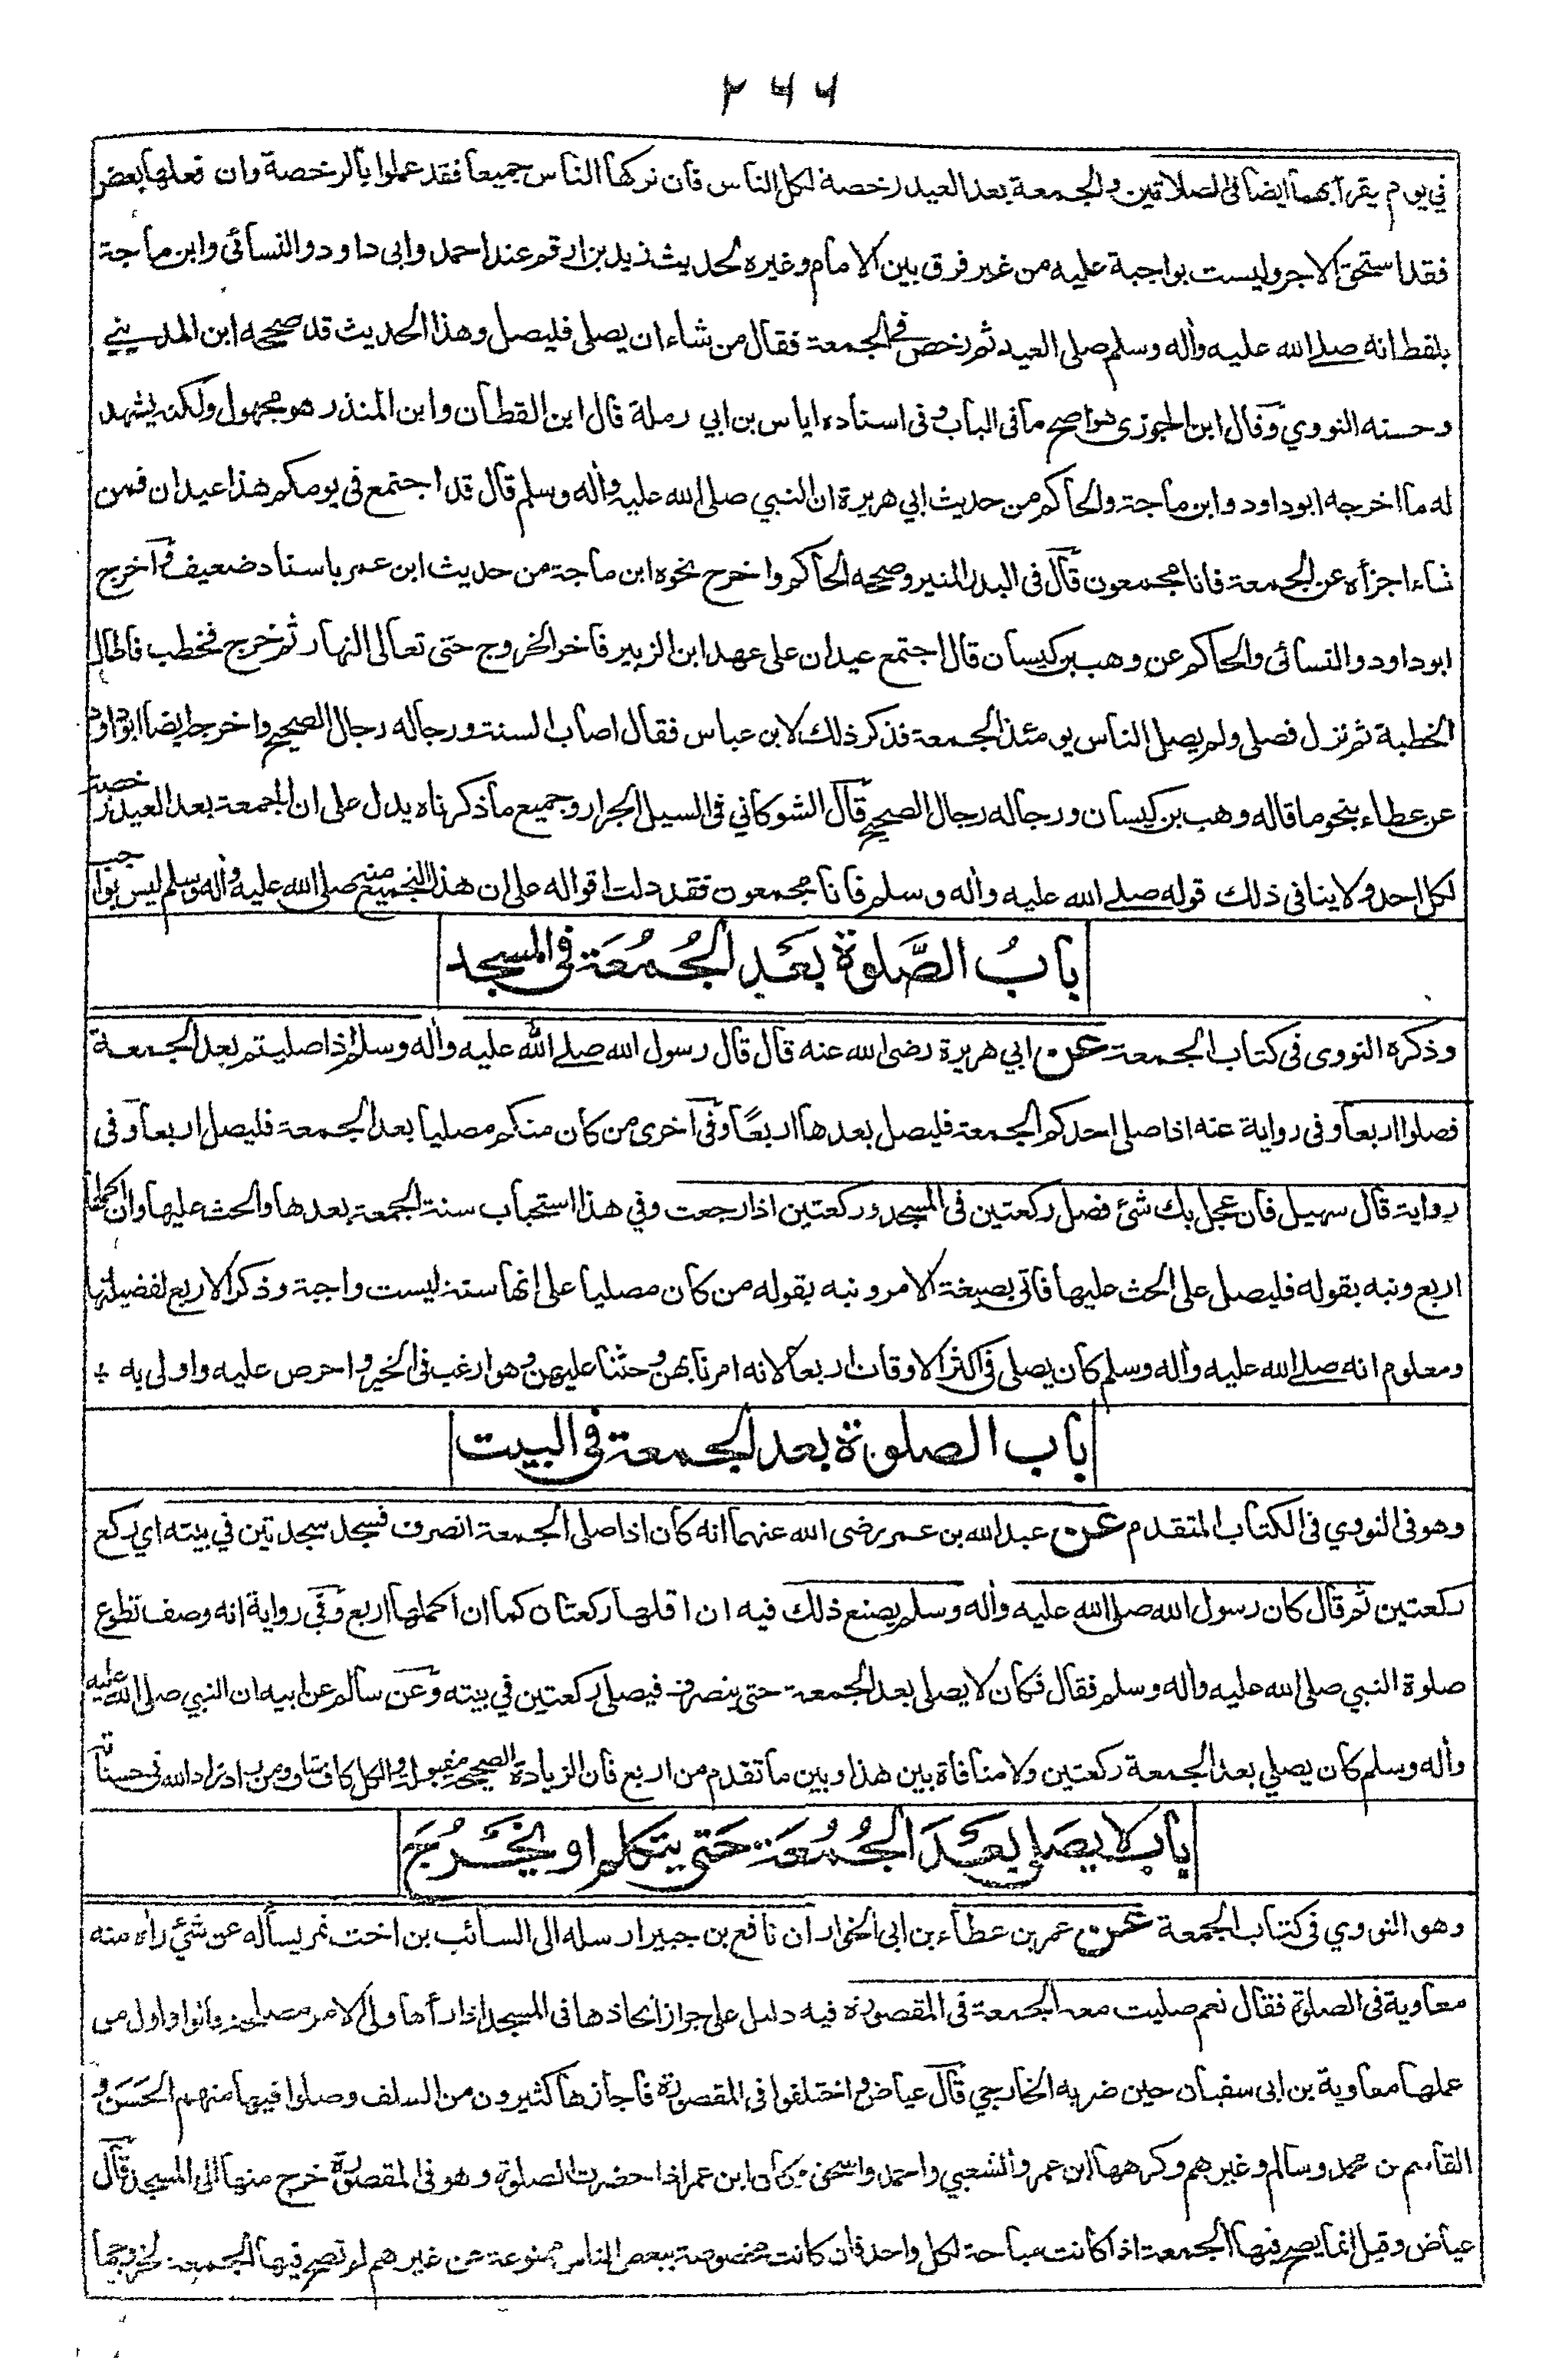 ٢٦٦
في يوم يقرأ بهما ايضا فى الصلاتين والجمعة بعد العيد رخصة لكل الناس فان تركها الناس جميعا فقد عملوا بالرخصة وان فعلها بعض
فقد استحق الاجر وليست بواجبة عليه من غير فرق بين الامام وغيره لحديث زيد بن ارقم عند احمد وابى داود والنسائى وابن ماجة
بلفظ انه صلى الله عليه وأله وسلم صلى العيد ثم رخص فى الجمعة فقال من شاء ان يصلى فليصل وهذا الحديث قد صححه ابن المديني
وحسنه النووي وقال ابن الجوزى هو اصح ما فى الباب وفى اسناده اياس بن ابي رملة قال ابن القطان وابن المنذر هو مجهول ولكنه يشهد
له ما اخرجه ابو داود وابن ماجة والحاكم من حديث ابي هريرة ان النبي صلى الله عليه وأله وسلم قال قد اجتمع فى يومكم هذا عيدان فمن
شاء اجزأه عن الجمعة فانا مجمعون قال فى البدر المنير وصححه الحاكم واخرج نحوه ابن ماجة من حديث ابن عمر باسناد ضعيف واخرج
ابو داود والنسائى والحاكم عن وهب بن كيسان قال اجتمع عيدان على عهد ابن الزبير فاخر الخروج حتى تعالى النهار ثم خرج فخطب فاطال
الخطبة ثم نزل فصلى ولم يصل الناس يومئذ الجمعة فذكر ذلك لابن عباس فقال اصاب السنة ورجاله رجال الصحيح واخرجه ايضا ابو داود
عن عطاء بنحو ما قاله وهب بن كيسان ورجاله رجال الصحيح قال الشوكاني فى السيل الجرار وجميع ما ذكرناه يدل على ان الجمعة بعد العيد رخصة
لكل احد ولا ينافى ذلك قوله صلى الله عليه وأله وسلم فانا مجمعون فقد دلت اقواله على ان هذا التجميع منه صلى الله عليه وأله وسلم ليس بواجب
بابُ الصَّلوة بَعَدِ الجُمُعَة فى المسجد
وذكره النووى فى كتاب الجمعة عن ابي هريرة رضى الله عنه قال قال رسول الله صلى الله عليه وأله وسلم اذا صليتم بعد الجمعة
فصلوا اربعا وفى رواية عنه اذا صلى احدكم الجمعة فليصل بعدها اربعًا وفى اخرى من كان منكم مصليا بعد الجمعة فليصل اربعا وفى
رواية قال سهيل فان عجل بك شئ فصل ركعتين فى المسجد وركعتين اذا رجعت وفي هذا استحباب سنة الجمعة بعدها والحث عليها وان اكملها
اربع ونبه بقوله فليصل على الحث عليها فاتى بصيغة الامر ونبه بقوله من كان مصليا على انها سنة ليست واجبة وذكر الاربع لفضيلتها
ومعلوم انه صلى الله عليه وأله وسلم كان يصلى فى اكثر الاوقات اربعا لانه امرنا بهن وحثنا عليهن وهو ارغب فى الخير واحرص عليه واولى به
باب الصلوة بعد الجمعة فى البيت
وهو فى النووي فى الكتاب المتقدم عن عبد الله بن عمر رضى الله عنهما انه كان اذا صلى الجمعة انصرف فسجد سجدتين في بيته اي ركع
ركعتين ثم قال كان رسول الله صلى الله عليه وأله وسلم يصنع ذلك فيه ان اقلها ركعتان كما ان اكملها اربع وفى رواية انه وصف تطوع
صلوة النبي صلى الله عليه وأله وسلم فقال فكان لا يصلى بعد الجمعة حتى ينصرف فيصلى ركعتين في بيته وعن سالم عن ابيه ان النبي صلى الله عليه
وأله وسلم كان يصلي بعد الجمعة ركعتين ولا منافاة بين هذا وبين ما تقدم من اربع فان الزيادة الصحيحة مقبولة والكل كاف شاف ومن زاد زاد الله فى حسناته
باب لا يصَلى بعَدَ الجُمُعَة حَتى يتكلم او يخَرُجَ
وهو النووي فى كتاب الجمعة عن عمر بن عطاء بن ابى الخوار ان نافع بن جبير ارسله الى السائب بن اخت نمر يسأله عن شئ رأه منه
معاوية فى الصلوة فقال نعم صليت معه الجمعة فى المقصورة فيه دليل على جواز اتخاذها فى المسجد اذا رأها ولى الامر مصلحة قالوا واول من
عملها معاوية بن ابى سفيان حين ضربه الخارجي قال عياض واختلفوا فى المقصورة فاجازها كثيرون من السلف وصلوا فيها منهم الحَسَن و
القاسم بن محمد وسالم وغيرهم وكرهها ابن عمر والشعبي واحمد واسحق وكان ابن عمر اذا حضرت الصلوة وهو فى المقصورة خرج منها الى المسجد قال
عياض وقيل انما يصح فيها الجمعة اذا كانت مباحة لكل واحد فان كانت مخصوصة ببعض الناس ممنوعة عن غيرهم لم تصح فيها الجمعة لخروجها